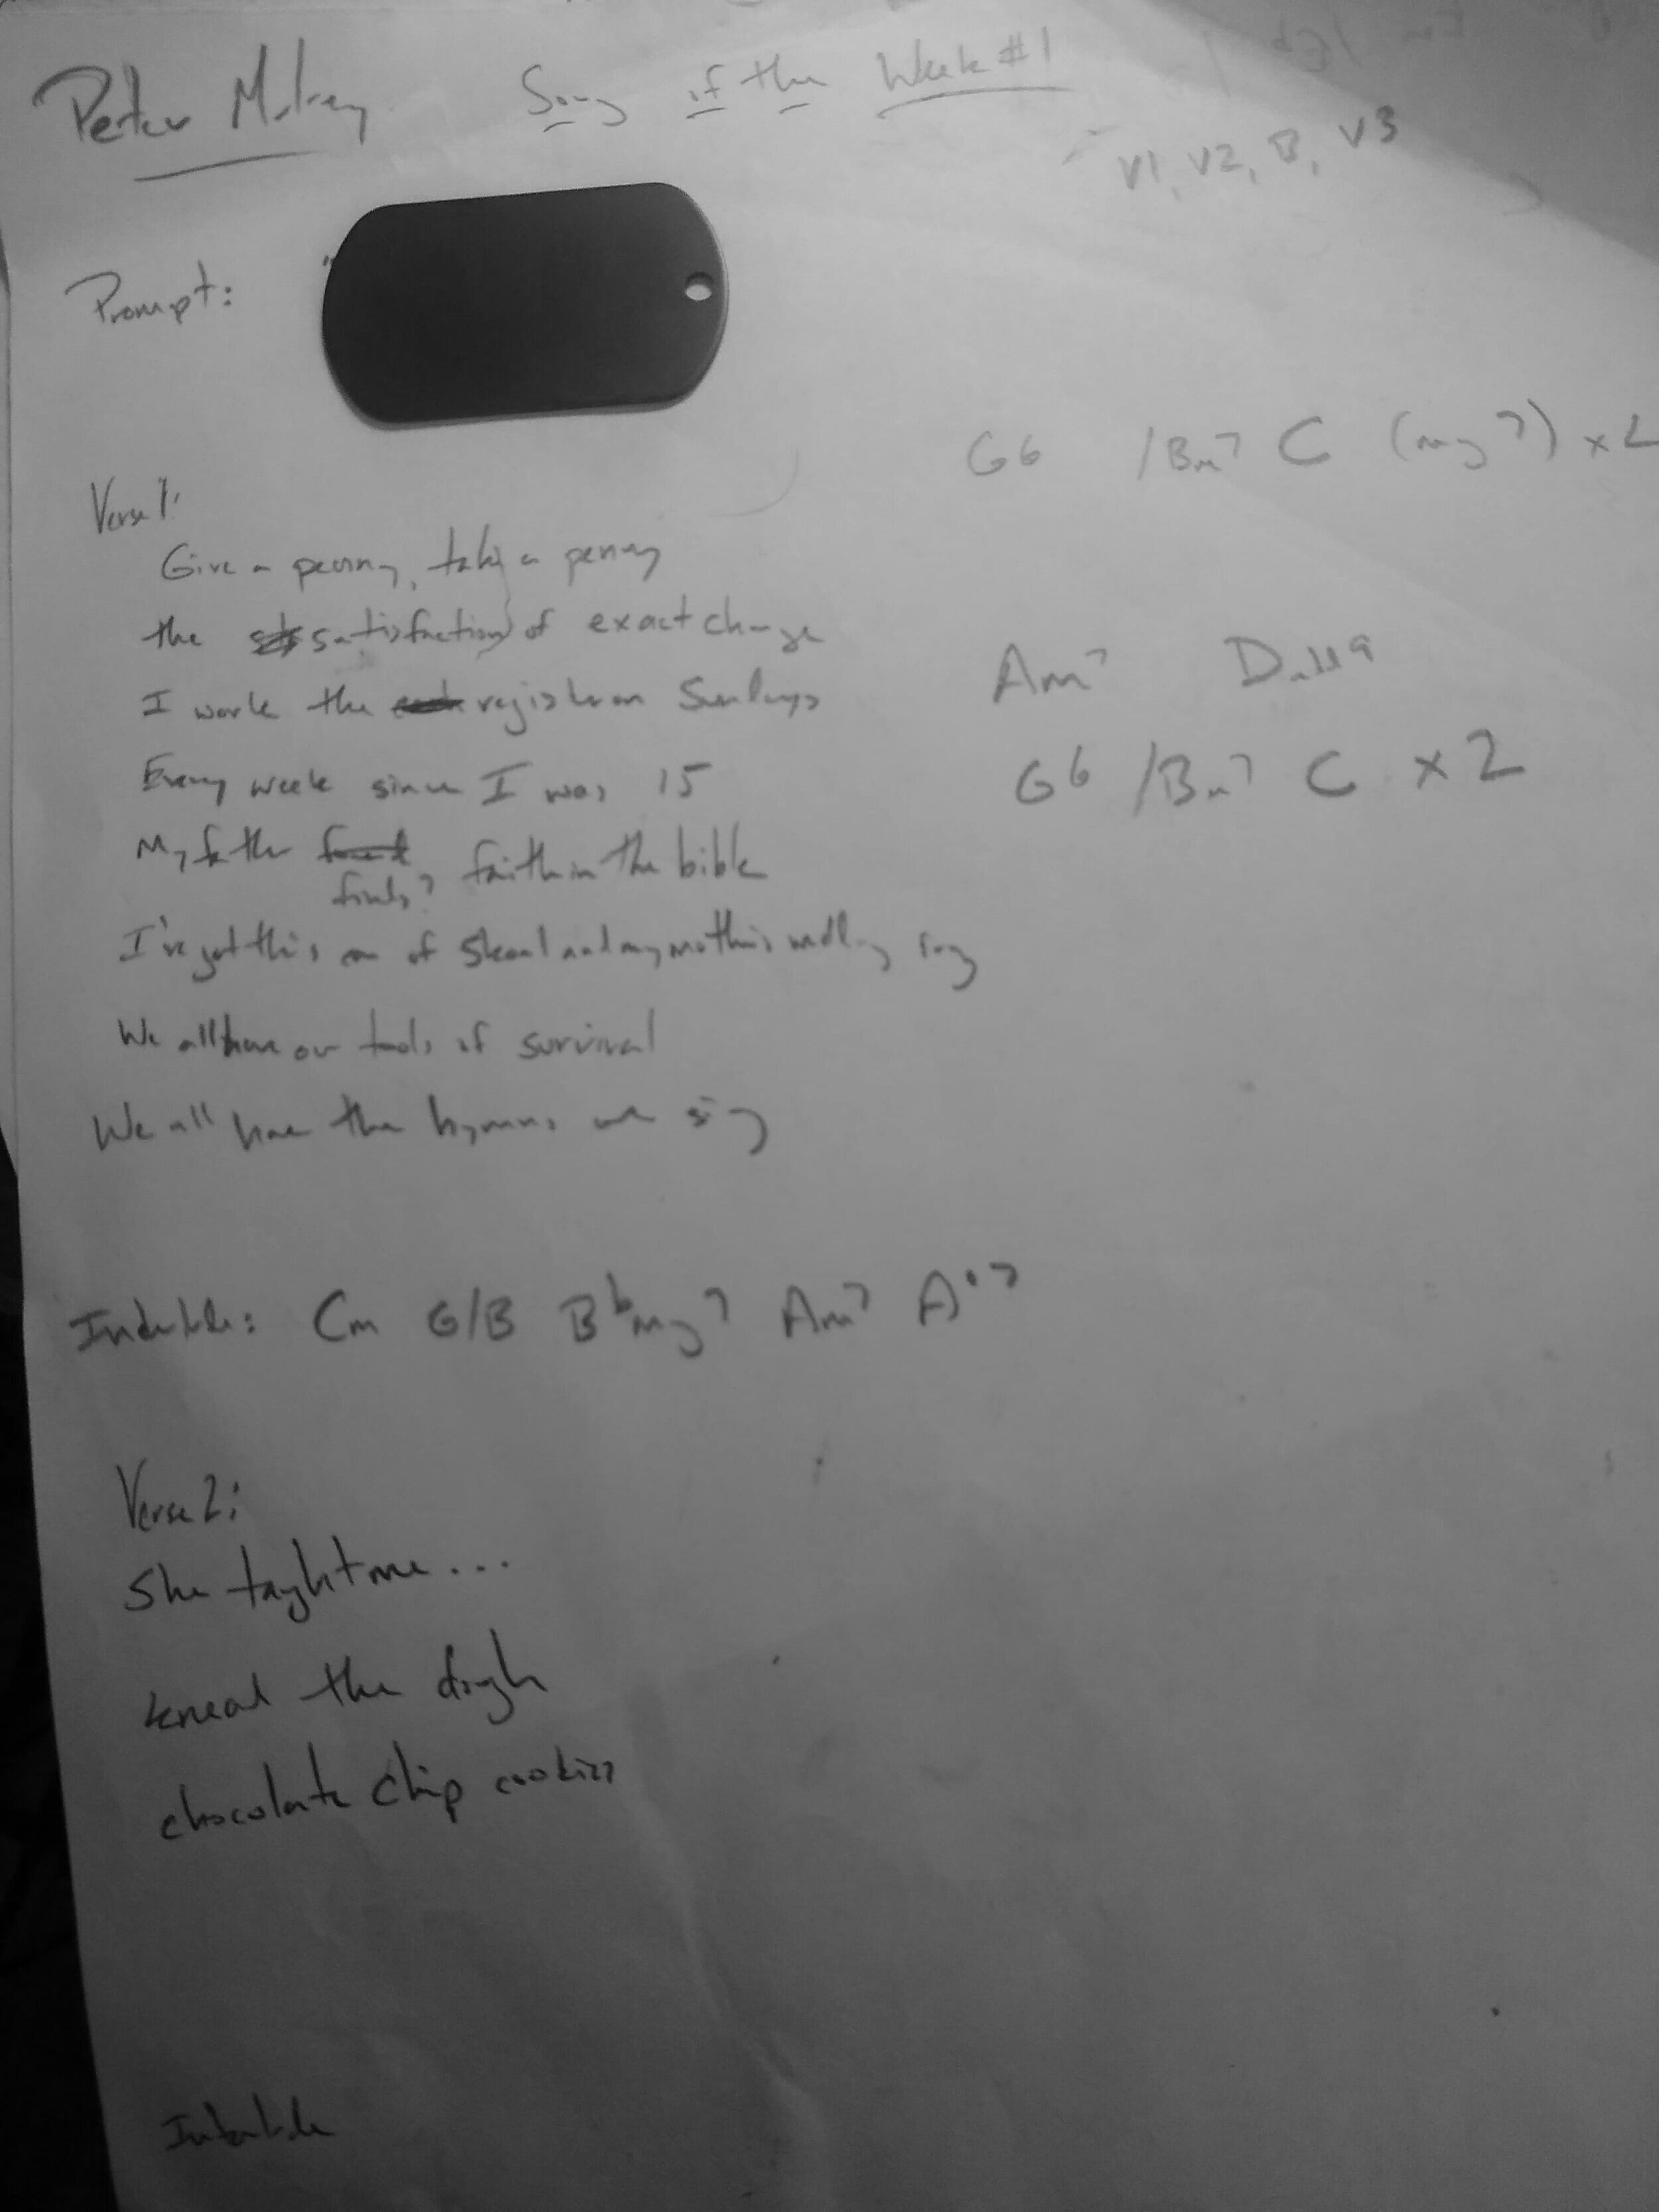 Peter Mulvey Song of the Week #1
V1, V2, B, V3
Prompt: "
G6 /Bm7 C (maj7) x2
Verse 1:
Give a penny, take a penny
the satisfaction of exact change
I work the register on Sundays
Am7
Every week since I was 15
G6 /Bm7 C x2
My father found faith in the bible
finds?
I've got this can of Skoal and my mother's wedding ring
We all have our tools of survival
We all have the hymns we sing
Interlude: Cm G/B Bbmaj7 Am7 A°7
Verse 2:
She taught me...
knead the dough
chocolate chip cookies
Interlude